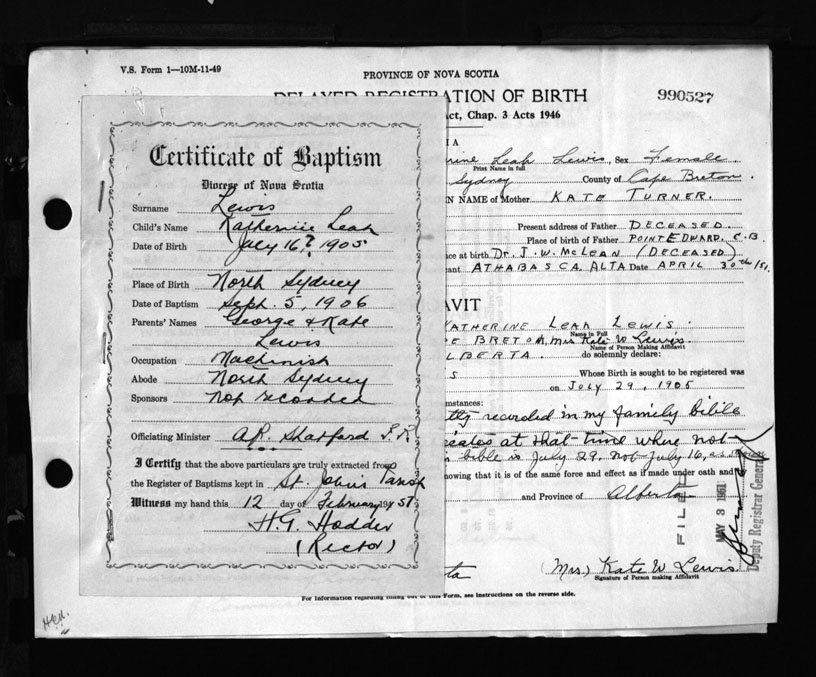 V.S. Form 1—10M-11-49
PROVINCE OF NOVA SCOTIA
DELAYED REGISTRATION OF BIRTH
990527
Act, Chap. 3 Acts 1946
Certificate of Baptism
Diocese of Nova Scotia
Surname Lewis
Child's Name Katherine Leah
Date of Birth July 16? 1905
Place of Birth North Sydney
Date of Baptism Sept. 5, 1906
Parents' Names George & Kate
Lewis
Occupation Machinist
Abode North Sydney
Sponsors Not recorded
Officiating Minister
I Certify that the above particulars are truly extracted from
the Register of Baptisms kept in St. John's Parish
Witness my hand this 12 day of February 1951
H.G. Hodder
(Rector)
erine Leah Lewis, Sex Female.
Print Name in full
Sydney County of Cape Breton.
N NAME of Mother KATE TURNER.
Present address of Father DECEASED
Place of birth of Father POINT EDWARD, C.B.
ce at birth Dr. J. W. McLEAN (DECEASED)
ant ATHABASCA, ALTA Date APRIL 30th/51.
AVIT
KATHERINE LEAH LEWIS.
Name in Full
PE BRETON, Mrs Kate W Lewis.
Name of Person Making Affidavit
LBERTA. do solemnly declare:
S Whose Birth is sought to be registered was
on JULY 29, 1905
mstances:
tly recorded in my family bible
at that time where not
bible is July 29, not July 16,
nowing that it is of the same force and effect as if made under oath and
and Province of Alberta
FILED
MAY 3 1951
Deputy Registrar General
ta (Mrs.) Kate W Lewis.
Signature of Person making Affidavit
For information regarding filling out of this Form, see instructions on the reverse side.